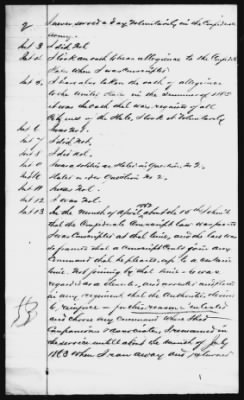 2 I never served a day voluntarily in the Confederate
army.
Int 3 I did not.
Int 4 I took an oath to bear allegiance to the Confed
States when I was conscripted.
Int 5 I have also taken the oath of allegiance
to the United States in the summer of 1865
it was the oath that was required of all
Citizens of the State, I took it voluntarily
Int 6 I was not.
Int 7 I did not.
Int 8 I did not.
Int 9 I was a soldier as stated in Question No 2.
Int 10 Stated under Question No 2.
Int 11 I was not.
Int 12 I was not.
Int 13 In the month of April about the 16th 1862
that the Confederate Conscript law was passed
I was conscripted at that time, and the law was
so framed that a conscript could join any
command that he pleased, up to a certain
time. Not joining by that time he was
regarded as a and
in any regiment that the Authorities
to for this reason I enlisted
and chose any command where I had
Companions & associates, I remained in
the service until about the month of July
1863 when I ran away and returned